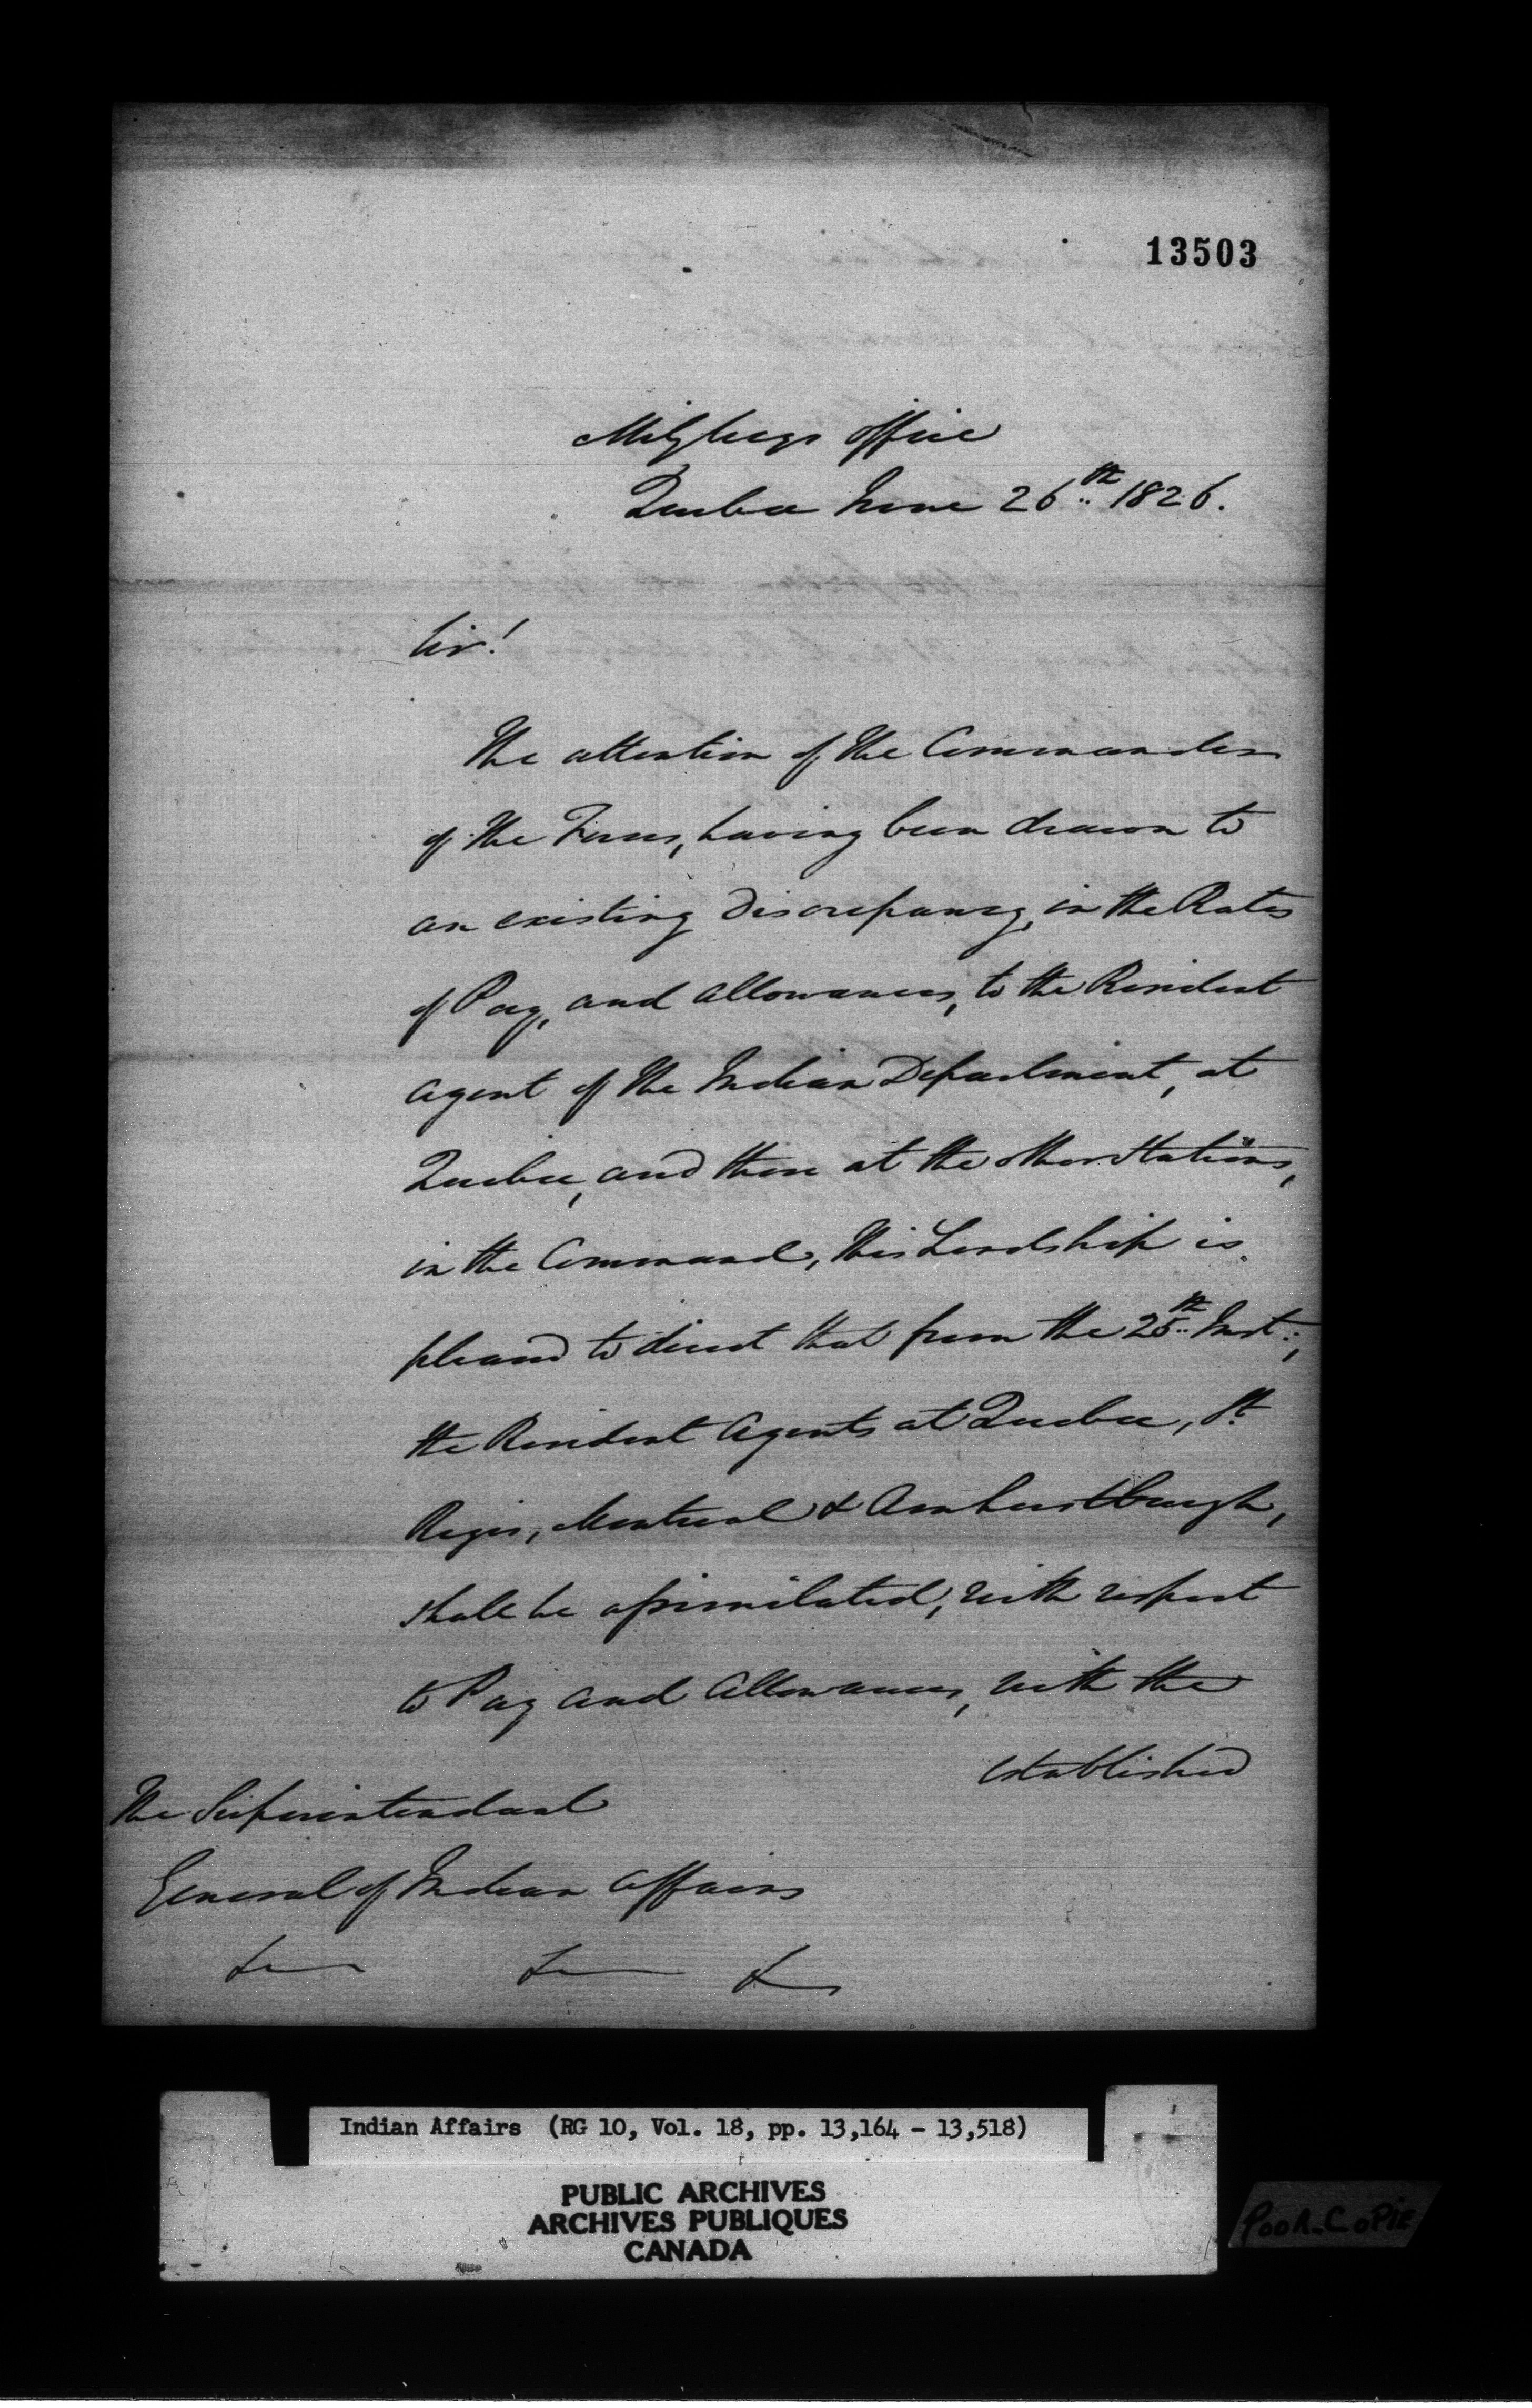 13503
Mily Secys Office
Quebec June 26th 1826.
Sir!
The attention of the Commander
of the Forces, having been drawn to
an existing Discrepancy, in the Rates
of Pay, and Allowances, to the Resident
Agent of the Indian Department, at
Quebec, and those at the other Stations,
in the Command, His Lordship is
pleased to direct that from the 25th Inst:,
the Resident Agents at Quebec, St
Regis, Montreal & Amherstburgh,
shall be assimilated, with respect
to Pay and Allowances, with the
established
The Superintendant
General of Indian Affairs
& & &
Indian Affairs (RG 10, Vol. 18, pp. 13,164 - 13,518)
PUBLIC ARCHIVES
ARCHIVES PUBLIQUES
CANADA
POOR COPIE